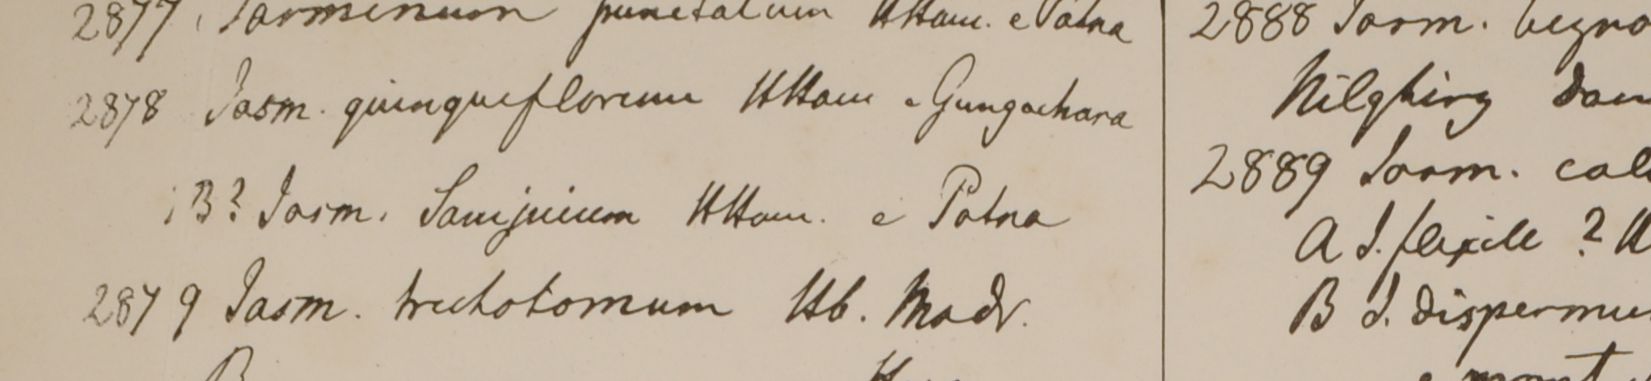 2877 Jasminum punctatum HHam. e Patna
2878 Jasm. quinqueflorum HHam e Gungachara
B? Jasm. HHam. e Patna
2879 Jasm. trichotomum Hb. Madr.
B
2888 Jasm.
Nilghiry
2889 Jasm.
A J. flexile ?
B J. dispermu